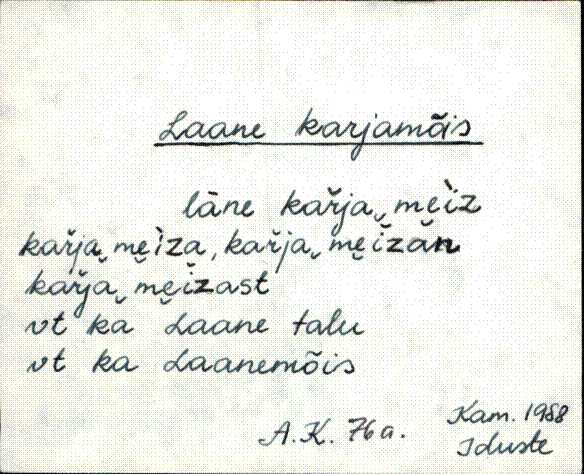 Laane karjamõis
lāne kařja ̮ mẹìz
kařja ̮ mẹìza, kařja ̮ mẹĭzăn
kařja ̮ mẹĭzast
vt ka Laane talu
vt ka Laanemõis
A.K. 76a. Kam. 1988
Iduste